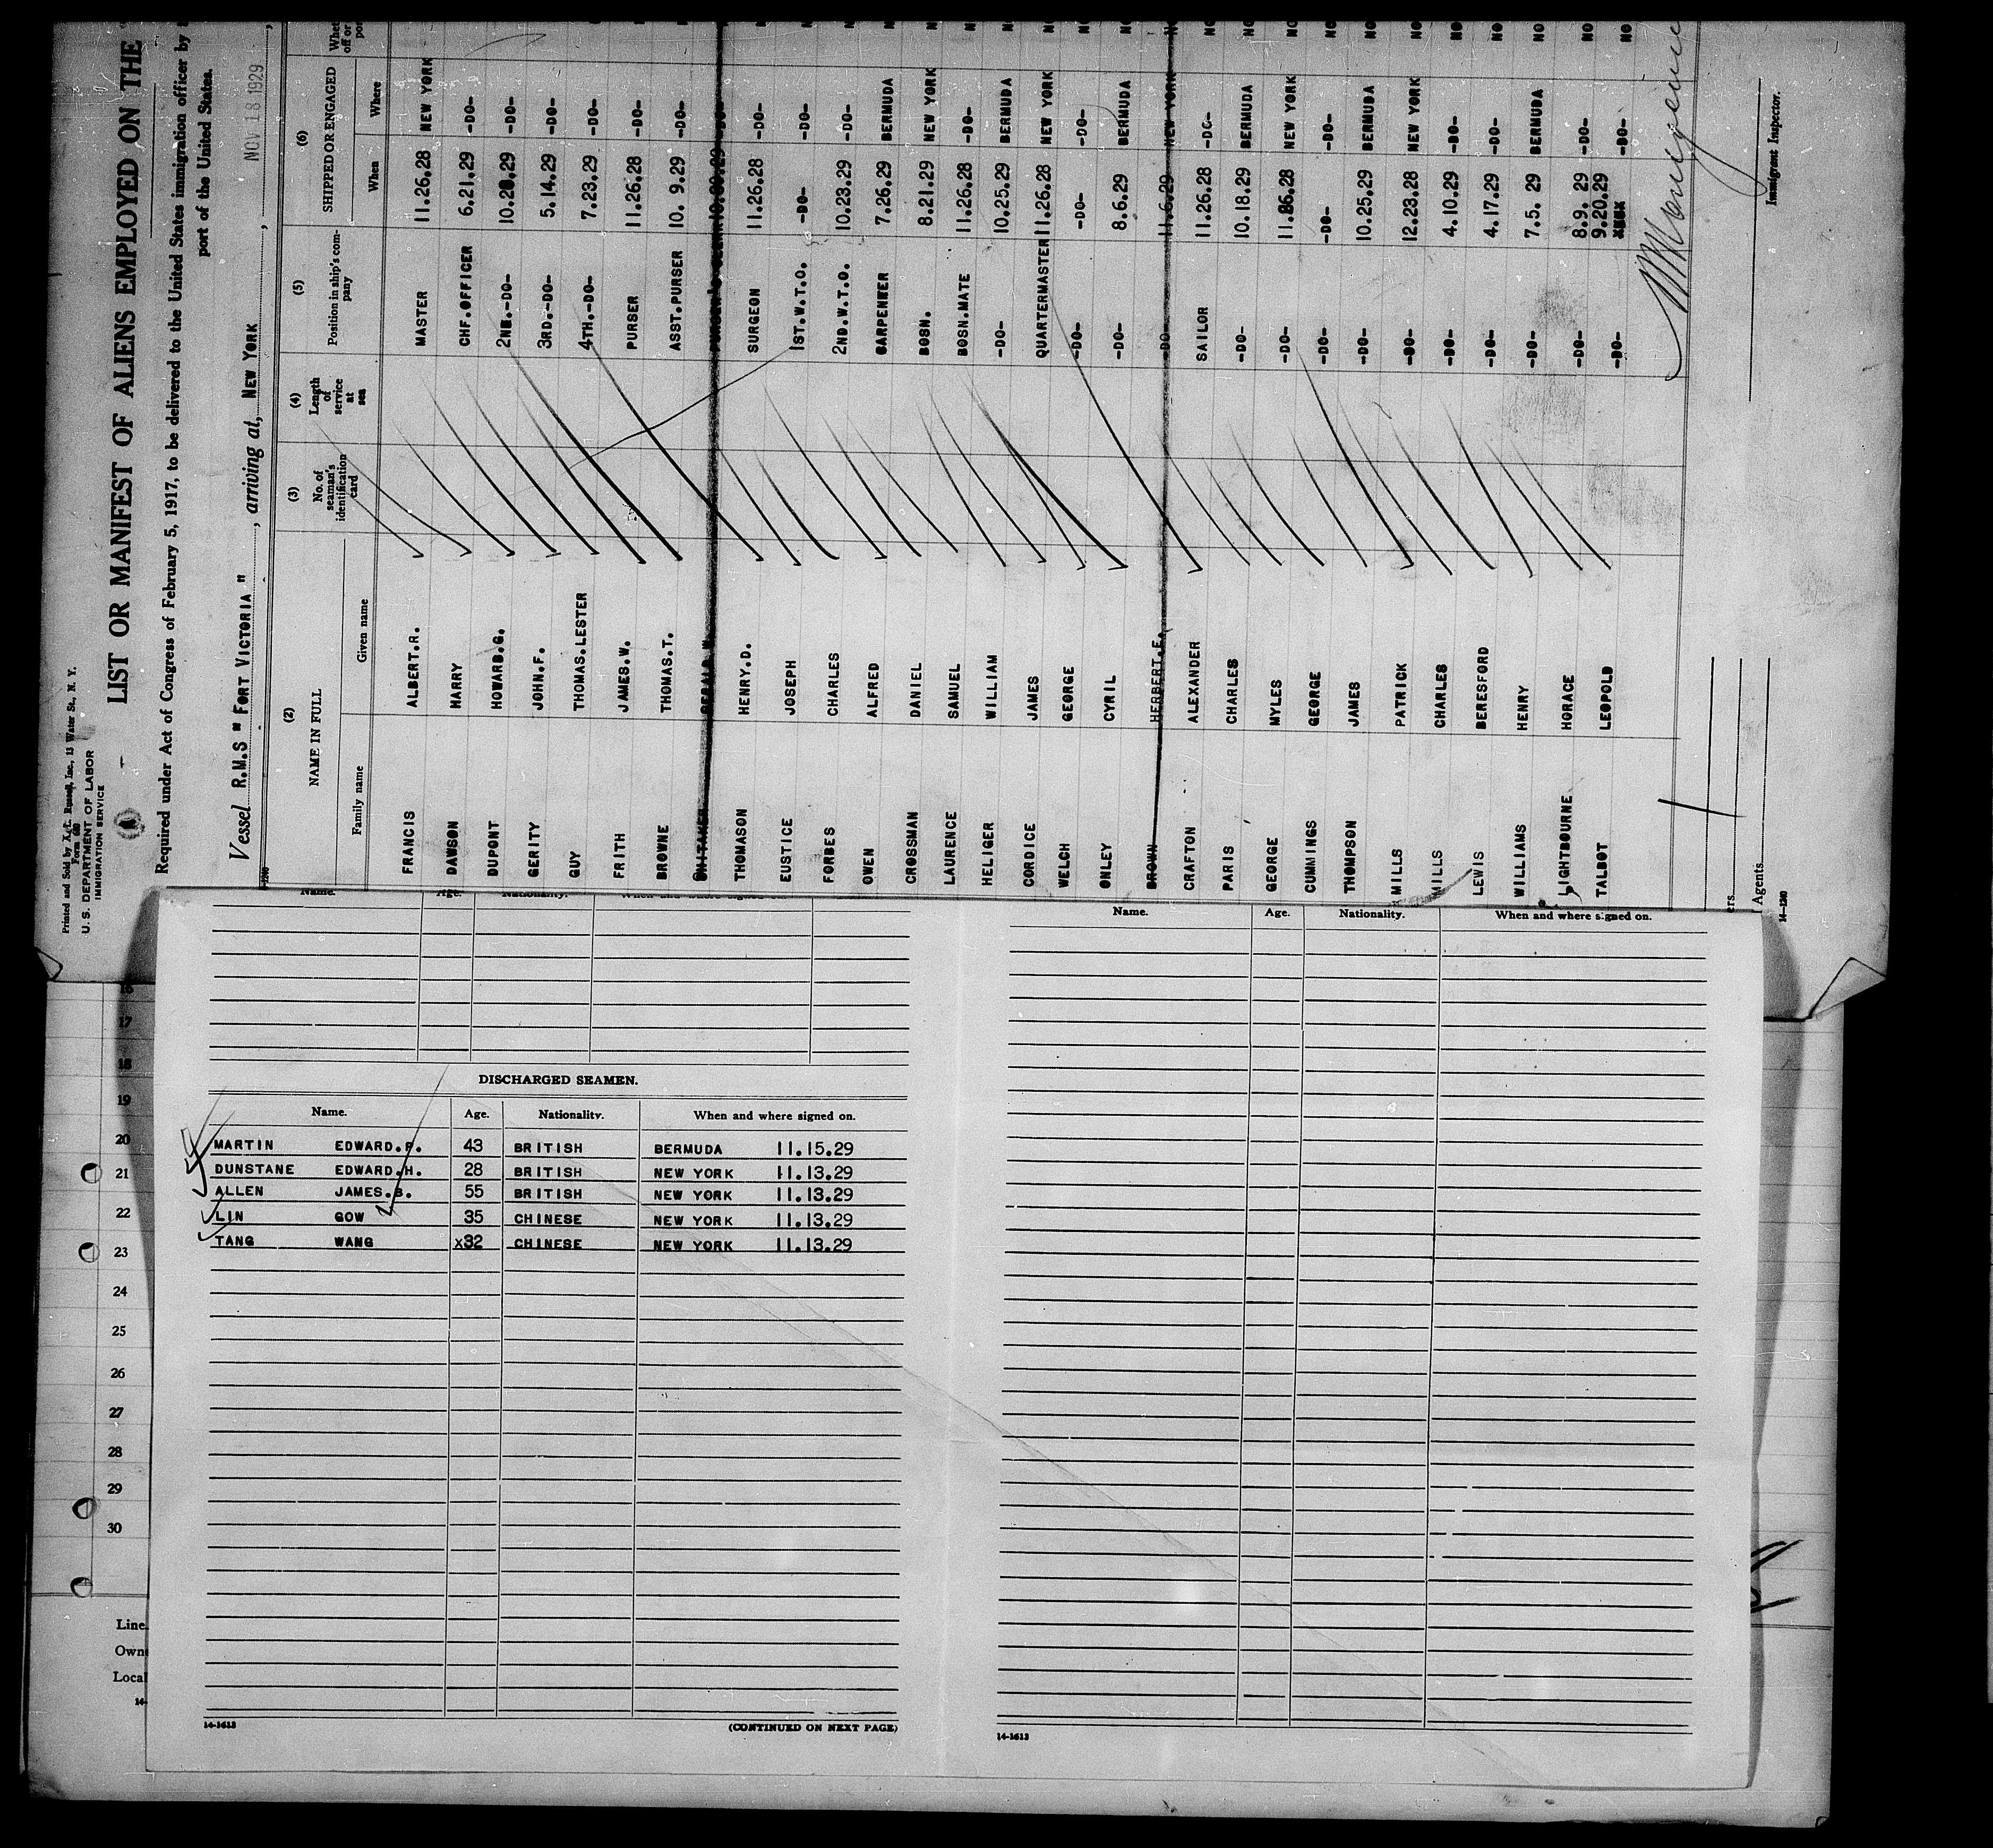 Printed and Sold by A. L. Russell, Inc., 13 Water St., N. Y.
Form 680
U. S. DEPARTMENT OF LABOR
IMMIGRATION SERVICE
LIST OR MANIFEST OF ALIENS EMPLOYED ON THE
Required under Act of Congress of February 5, 1917, to be delivered to the United States immigration officer by
port of the United States.
Vessel R.M.S " FORT VICTORIA " , arriving at, NEW YORK , NOV 18 1929 ,
(2) (3) (4) (5) (6)
NAME IN FULL No. of seaman's identification card Length of service at sea Position in ship's company SHIPPED OR ENGAGED
Family name Given name When Where
FRANCIS ALBERT.R. MASTER 11.26.28 NEW YORK
DAWSON HARRY CHF.OFFICER 6.21.29 -DO-
DUPONT HOWARD.G. 2ND.-DO- 10.28.29 -DO-
GERITY JOHN.F. 3RD.-DO- 5.14.29 -DO-
GUY THOMAS.LESTER 4TH.-DO- 7.23.29 -DO-
FRITH JAMES.W. PURSER 11.26.28 -DO-
BROWNE THOMAS.T. ASST.PURSER 10. 9.29 -DO-
WHITAKER GERALD.W. PURSER'S CLERK -DO-
THOMASON HENRY.D. SURGEON 11.26.28 -DO-
EUSTICE JOSEPH 1ST.W.T.O. -DO- -DO-
FORBES CHARLES 2ND.W.T.O. 10.23.29 -DO-
OWEN ALFRED CARPENTER 7.26.29 BERMUDA
CROSSMAN DANIEL BOSN. 8.21.29 NEW YORK
LAURENCE SAMUEL BOSN.MATE 11.26.28 -DO-
HELIGER WILLIAM -DO- 10.25.29 BERMUDA
CORDICE JAMES QUARTERMASTER 11.26.28 NEW YORK
WELCH GEORGE -DO- -DO- -DO-
ONLEY CYRIL -DO- 8.6.29 BERMUDA
BROWN HERBERT.E. -DO- 11.6.29 NEW YORK NO
CRAFTON ALEXANDER SAILOR 11.26.28 -DO- NO
PARIS CHARLES -DO- 10.18.29 BERMUDA NO
GEORGE MYLES -DO- 11.26.28 NEW YORK NO
CUMMINGS GEORGE -DO- -DO- -DO- NO
THOMPSON JAMES -DO- 10.25.29 BERMUDA NO
MILLS PATRICK -DO- 12.23.28 NEW YORK NO
MILLS CHARLES -DO- 4.10.29 -DO- NO
LEWIS BERESFORD -DO- 4.17.29 -DO- NO
WILLIAMS HENRY -DO- 7.5. 29 BERMUDA NO
LIGHTBOURNE HORACE -DO- 8.9. 29 -DO- NO
TALBOT LEOPOLD -DO- 9.20.29 -DO- NO
Immigrant Inspector.
Agents
14-1240
Name. Age. Nationality. When and where signed on.
DISCHARGED SEAMEN.
Name. Age. Nationality. When and where signed on.
MARTIN EDWARD.P. 43 BRITISH BERMUDA 11.15.29
DUNSTANE EDWARD.H. 28 BRITISH NEW YORK 11.13.29
ALLEN JAMES.B. 55 BRITISH NEW YORK 11.13.29
LIN GOW 35 CHINESE NEW YORK 11.13.29
TANG WANG x32 CHINESE NEW YORK 11.13.29
14-1613 (CONTINUED ON NEXT PAGE)
Name. Age. Nationality. When and where signed on.
14-1613
16
17
18
19
20
21
22
23
24
25
26
27
28
29
30
Line
Own
Local
14-